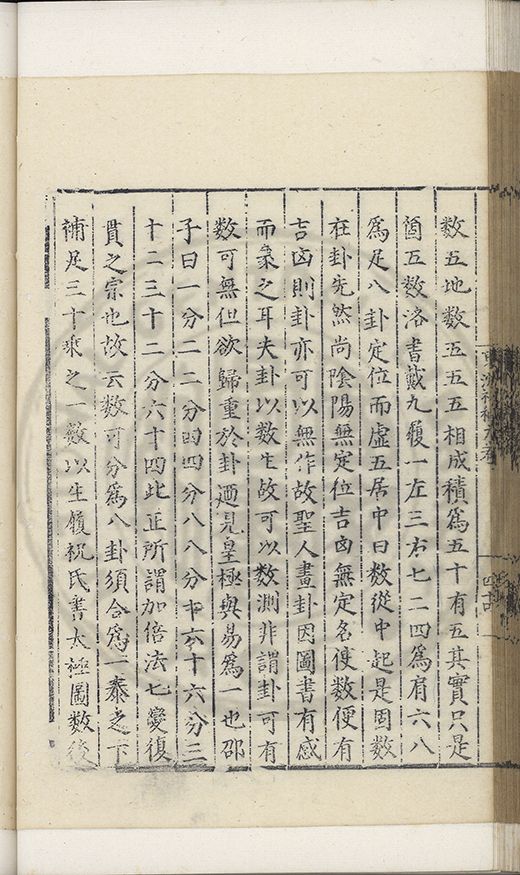 数五地数五五五相成積爲五十有五其實只是
酉五数洛書戴九履一左三右七二四爲肩六八
爲足八卦定位而虚五居中曰数從中起是因数
在卦先然尚陰陽無定位吉凶無定名使数便有
吉凶則卦亦可以無作故聖人畫卦因圖書有感
而彖之耳夫卦以数生故可以数測非謂卦可有
数可無但欲歸重於卦廼見皇極與易爲一也邵
子曰一分二二分四四分八八分十六十六分三
十二三十二分六十四此正所謂加倍法七變復
貫之宗也故云数可分爲八卦須合爲一泰之下
補足三十乘之一数以生願祝氏書太極圖数後